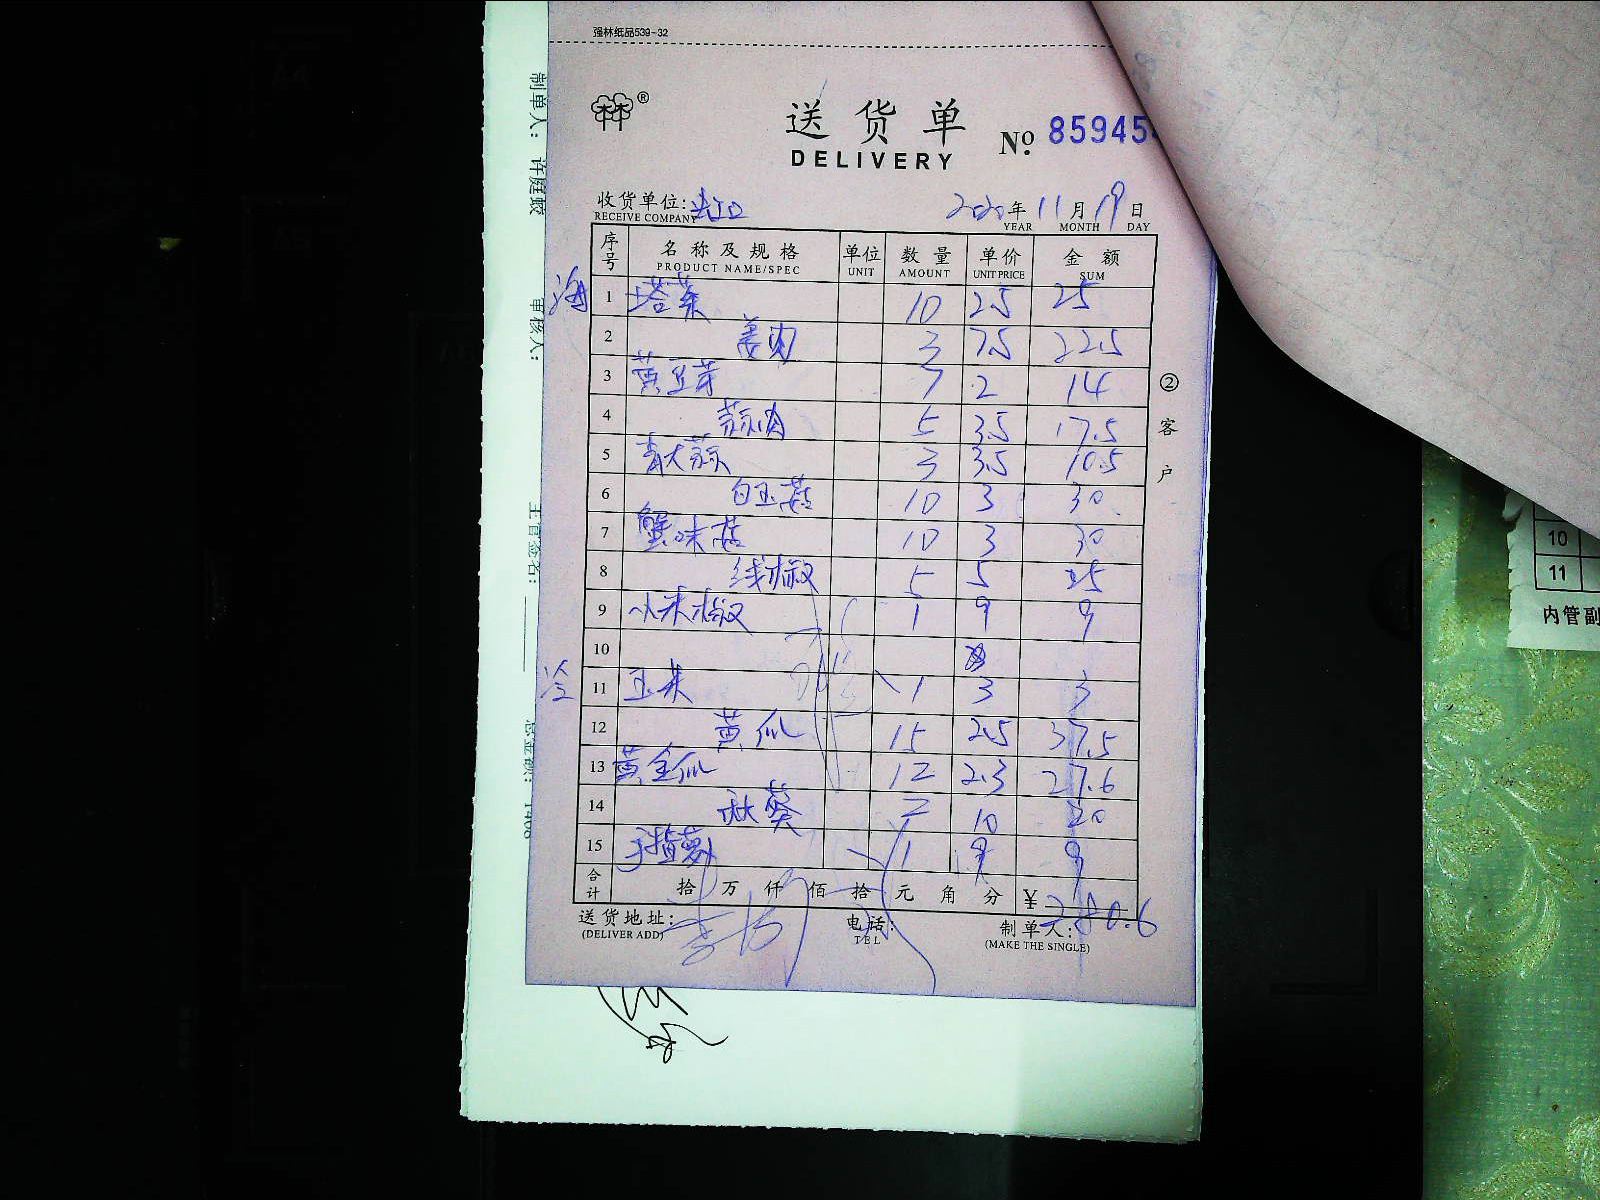 强林纸品539-32
林林®
送货单
DELIVERY
№ 85945
收货单位:
RECEIVE COMPANY
2020年11月19日
YEAR MONTH DAY
序号 名称及规格 单位 数量 单价 金额
PRODUCT NAME/SPEC UNIT AMOUNT UNIT PRICE SUM
海
1 塔菜 10 2.5 25
2 姜肉 3 7.5 22.5
3 黄豆芽 7 2 14
4 蒜肉 5 3.5 17.5
5 青大蒜 3 3.5 10.5
6 白玉菇 10 3 30
7 蟹味菇 10 3 30
8 线椒 5 5 25
9 小米椒 1 9 9
10
冷
11 玉米 1 3 3
12 黄瓜 15 2.5 37.5
13 黄金瓜 12 2.3 27.6
14 秋葵 2 10 20
15 手指萝卜 1 9 9
合计 拾万仟佰拾元角分 ¥280.6
送货地址:
(DELIVER ADD)
电话:
TEL
制单人:
(MAKE THE SINGLE)
②客户
制单人: 许庭蛟
审核人:
主管签名:
总金额: 1408
10
11
内管副